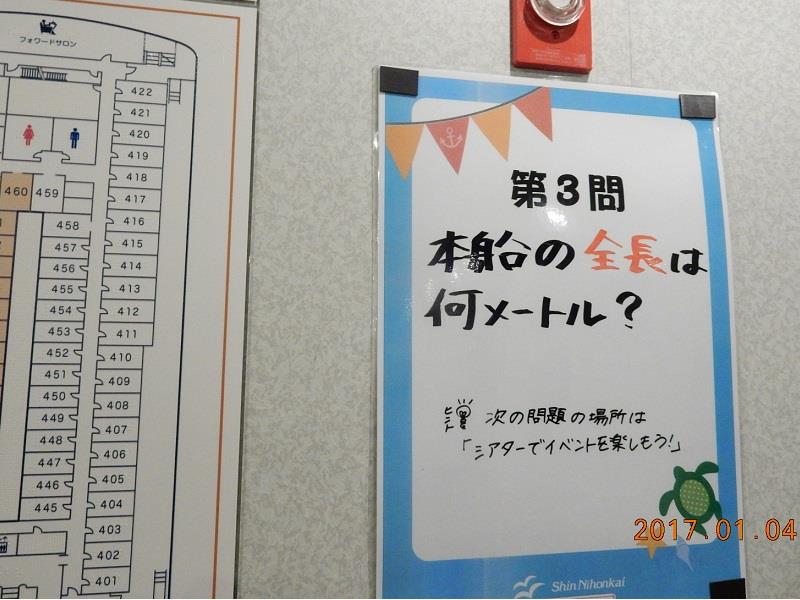 フォワードサロン
422
421
420
419
418
417
416
415
414
413
412
411
410
409
408
407
406
405
404
403
402
401
460
459
458
457
456
455
454
453
452
451
450
449
448
447
446
445
第3問
本船の全長は
何メートル?
ヒント 次の問題の場所は
「シアターでイベントを楽しもう!」
Shin Nihonkai
2017.01.04